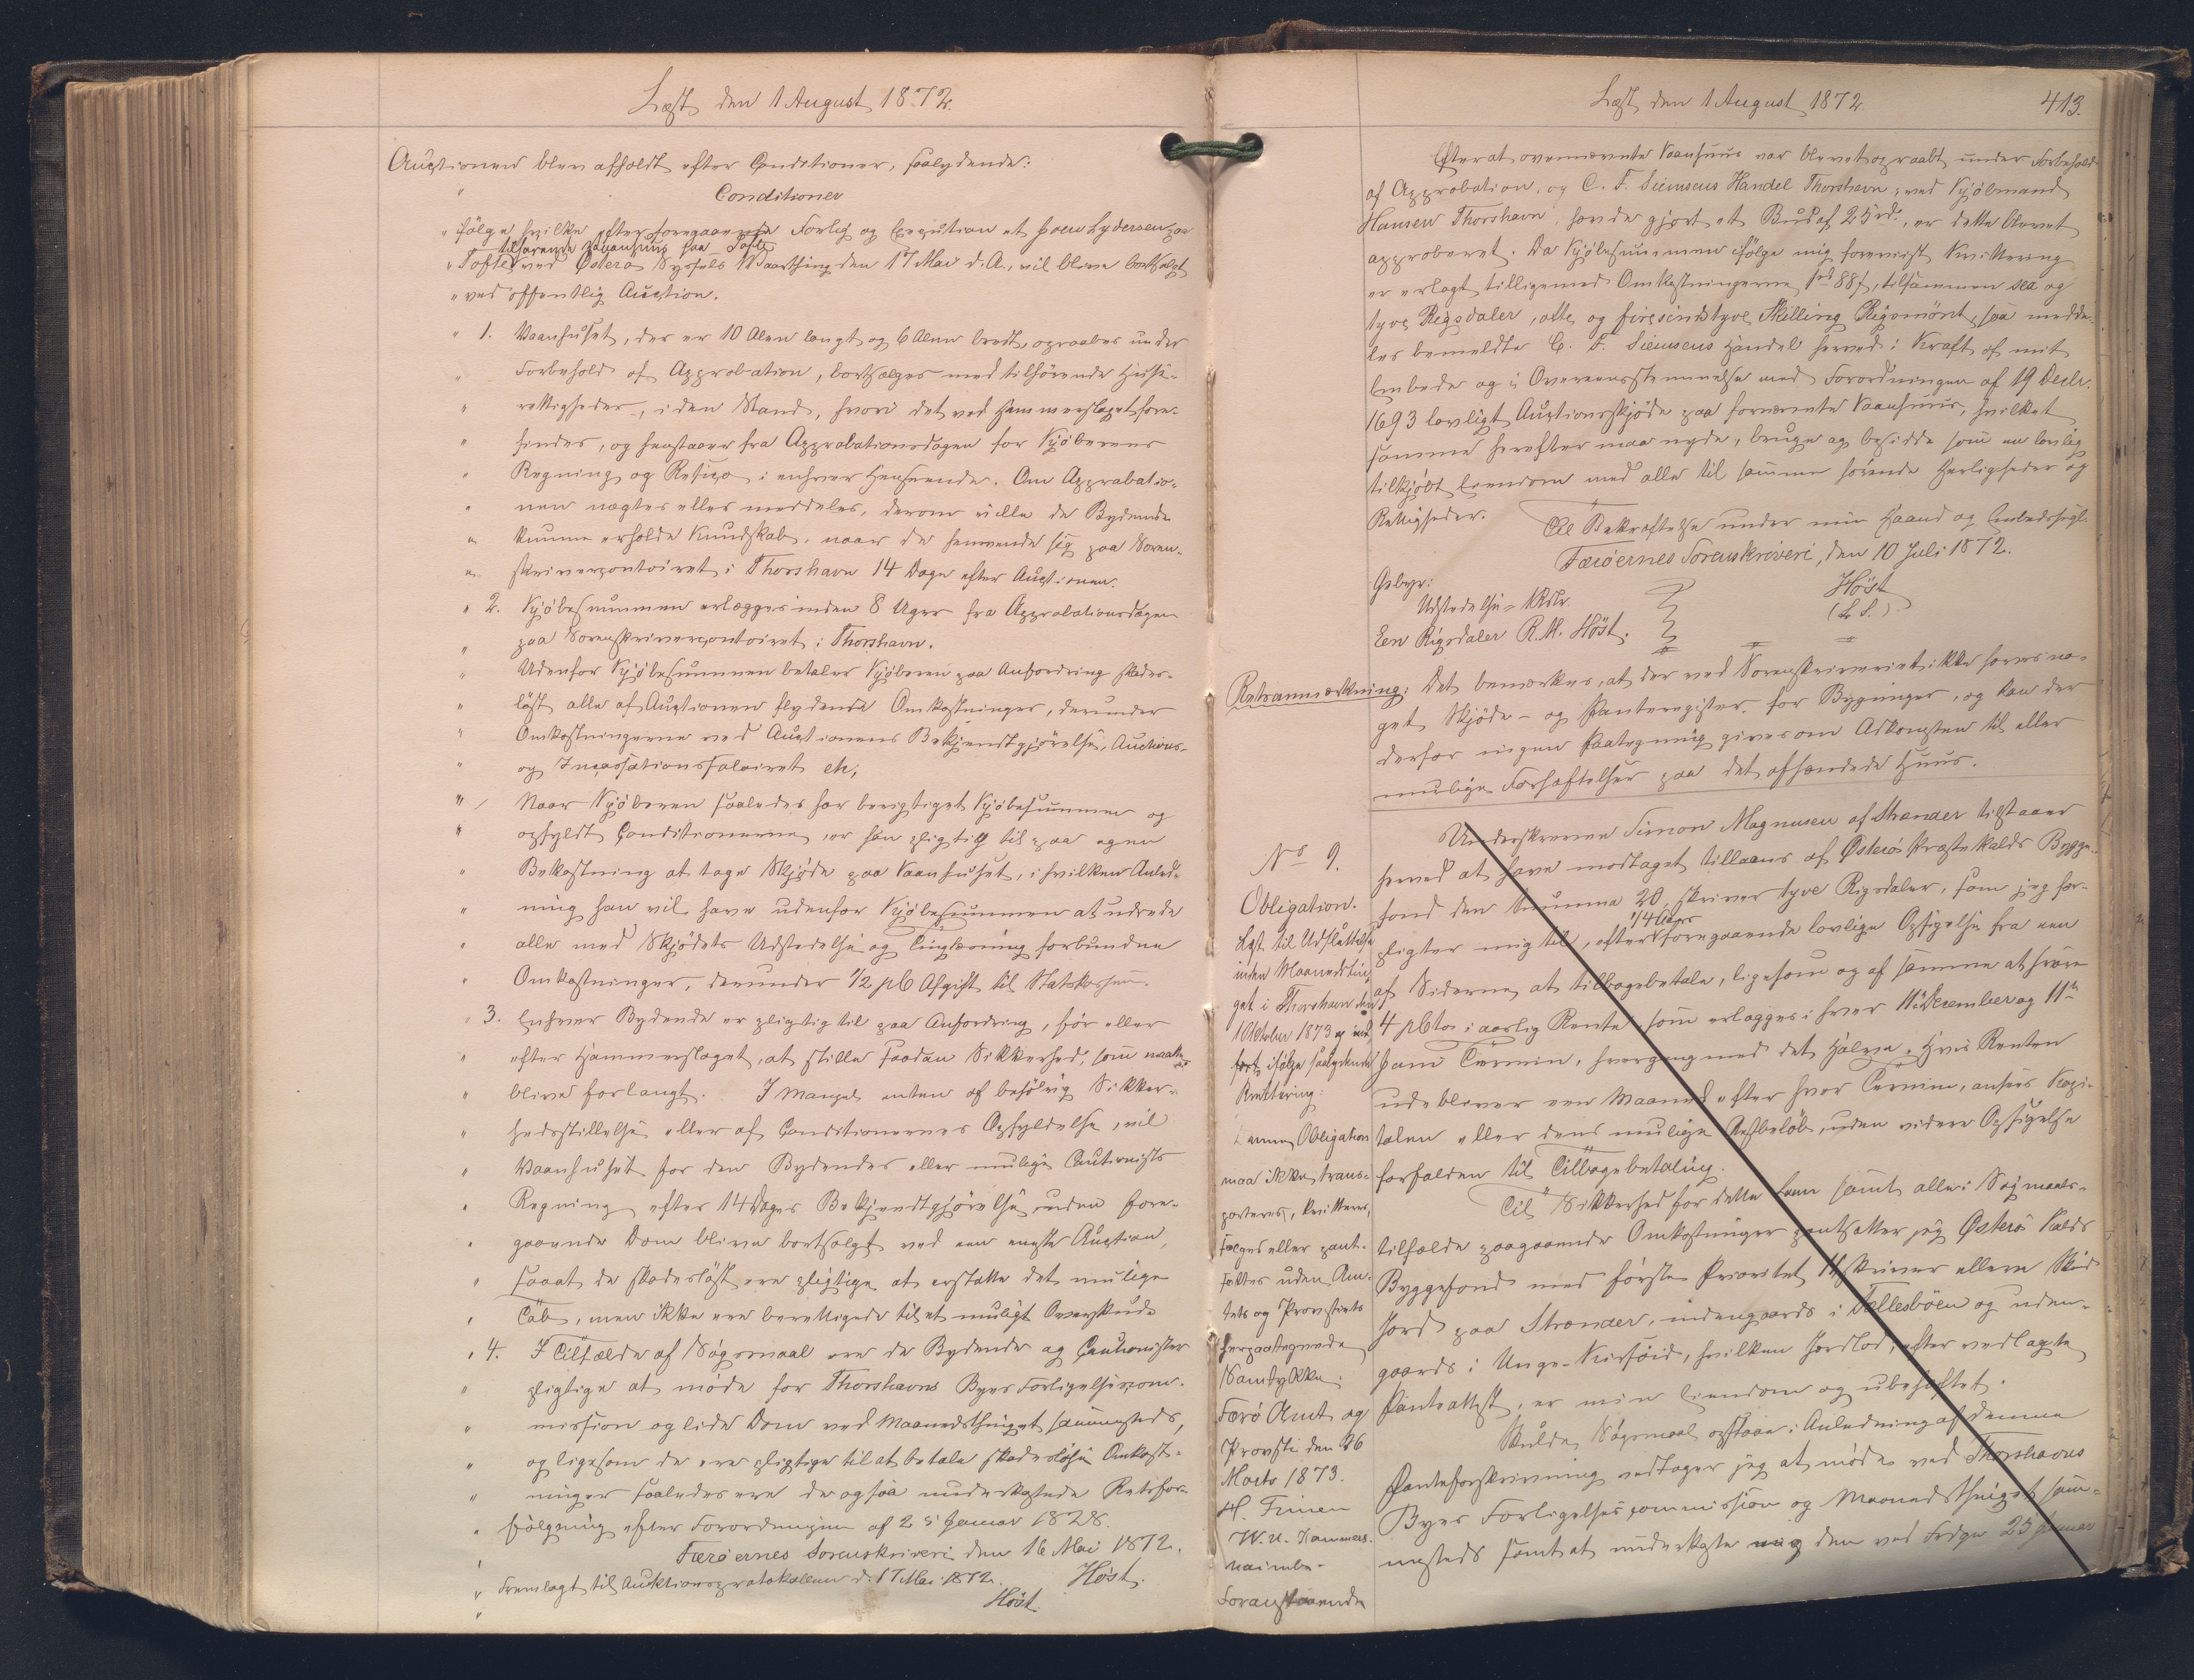 Læst den 1 August 1872.
Auctionen blev afholdt efter Conditioner, saalydende:
" Conditioner
" følge hvilke efter foregaaende Forlig og Execution et Poul Lydersen paa
tilhørende Vaanhuus paa Tofte
" Tofte ved Østerø Syssels Vaarthing den 17 Mai d. A., vil blive bortsolgt
" ved offentlig Auction.
" 1. Vaanhuset, der er 10 Alen langt og 6 Alen bredt, opraabes under
" Forbehold af Approbation, bortsælges med tilhørende Huse-
" rettigheder, i den Stand, hvori det ved Hammerslaget fore-
" findes, og henstaaer fra Approbationsdagen for Kjøberens
" Regning og Risico i enhver Henseende. Om Approbatio-
" nen nægtes eller meddeles, derom ville de Bydende
" kunne erholde Kundskab, naar de henvende sig paa Soren-
" skrivercontoiret i Thorshavn 14 Dage efter Auctionen.
" 2. Kjøbesummen erlægges inden 8 Uger fra Approbationsdagen
" paa Sorenskrivercontoiret i Thorshavn.
" Udenfor Kjøbesummen betaler Kjøberen paa Anfordring skades-
" løst alle af Auctionen flydende Omkostninger, derunder
" Omkostningerne ved Auctionens Bekjendtgjørelse, Auctions-
" og Incassationssalairet etc,
" Naar Kjøberen saaledes har berigtiget Kjøbesummen og
" opfyldt Conditionerne, er han pligtig til paa egen
" Bekostning at tage Skjøde paa Vaanhuset, i hvilken Anled-
" ning han vil have udenfor Kjøbesummen at udrede
" alle med Skjødets Udstedelse og Tinglæsning forbundne
" Omkostninger, derunder 1/2 pCt Afgift til Statskassen.
" 3. Enhver Bydende er pligtig til paa Anfordring, før eller
" efter Hammerslaget, at stille saadan Sikkerhed, som maatte
" blive forlangt. I Mangel enten af behørig Sikker-
" hedsstillelse eller af Conditionernes Opfyldelse, vil
" Vaanhuset for den Bydendes eller mulige Cautionists
" Regning efter 14 Dages Bekjendtgjørelse uden fore-
" gaaende Dom blive bortsolgt ved een eneste Auction,
" saaat de skadesløst ere pligtige at erstatte det mulige
" Tab, men ikke ere berettigede til et muligt Overskud.
" 4. I Tilfælde af Søgsmaal ere de Bydende og Cautionister
" pligtige at møde for Thorshavns Byes Forligelsescom-
" mission og lide Dom ved Maanedsthinget sammesteds,
" og ligesom de ere pligtige til at betale skadesløse Omkost-
" ninger saaledes ere de ogsaa underkastede Retsfor-
" følgning efter Forordningen af 25 Januar 1828.
" Færøernes Sorenskriveri den 16 Mai 1872.
Høst.
" Fremlagt til Auktionsprotokollen d. 17 Mai 1872.
" Høst.
Læst den 1 August 1872.
413.
Efterat ovennævnte Vaanhuus var blevet opraabt under Forbehold
af Approbation, og C. F. Siemsens Handel Thorshavn, ved Kjøbmand
Hansen Thorshavn, havde gjort et Bud af 25 rd., er dette blevet
approberet. Da Kjøbesummen ifølge mig foreviist Kvittering
er erlagt tilligemed Omkostningerne 1 rd 88 s, tilsammen sex og
tyve Rigsdaler, otte og firesindstyve Skilling Rigsmønt, saa medde-
les bemeldte C. F. Siemsens Handel herved i Kraft af mit
Embede og i Overeensstemmelse med Forordningen af 19 Decbr.
1693 lovligt Auctionsskjøde paa fornævnte Vaanhuus, hvilket
samme herefter maa nyde, bruge og besidde som en lovlig
tilkjøbt Eiendom med alle til samme hørende Herligheder og
Rettigheder.
Til Bekræftelse under min Haand og Embedssegl.
Færøernes Sorenskriveri, den 10 Juli 1872.
Høst
(L. S.)
Gebyr:
Udstedelse - 1 Rdlr.
Een Rigsdaler R. M. Høst.
Retsanmærkning: Det bemærkes, at der ved Sorenskriveriet ikke haves no-
get Skjøde- og Panteregister for Bygninger, og kan der
derfor ingen Paategning gives om Adkomsten til eller
mulige Forhæftelser paa det afhændede Huus.
No 9.
Obligation.
Læst til Udslettelse
inden Maanedsthin-
get i Thorshavn den
1 Oktober 1873 og ind-
ført ifølge saalydende
Kvittering:
Denne Obligation
maa ikke trans-
porteres, kvitteres,
sælges eller pant-
sættes uden Am-
tets og Provstiets
herpaategnede
Samtykke.
Færø Amt og
Provsti den 26
Marts 1873.
H. Finsen
W. U. Hammers-
haimb.
Foranstaaende
Underskrevne Simon Magnusen af Strænder tilstaaer
herved at have modtaget tillaans af Østerø Præstekalds Bygge-
fond den Summa 20, skriver tyve Rigsdaler, som jeg for-
pligter mig til, efter 1/4 Aars foregaaende lovlige Opsigelse fra een
af Siderne at tilbagebetale, ligesom og af samme at svare
4 pCto i aarlig Rente, som erlægges i hver 11te December og 11te
Juni Termin, hvergang med det Halve. Hvis Renten
udebliver een Maaned efter hver Termin, ansees Kapi-
talen eller dens mulige Restbeløb, uden videre Opsigelse
forfalden til Tilbagebetaling.
Til Sikkerhed for dette Laan samt alle i Søgmaals-
tilfælde paagaaende Omkostninger pantsætter jeg Østerø Kalds
Byggefond med første Prioritet 11 skriver elleve Skind
Jord paa Strænder, indengaards i Fællesbøen og uden-
gaards i Unge-Kirsøid, hvilken Jordlod, efter vedlagte
Panteattest, er min Eiendom og ubehæftet.
Skulde Søgsmaal opstaae i Anledning af denne
Panteforskrivning vedtager jeg at møde ved Thorshavns
Byes Forligelsescommission og Maanedsthinget sam-
mesteds samt at underkaste mig den ved Frdgn 25 Januar